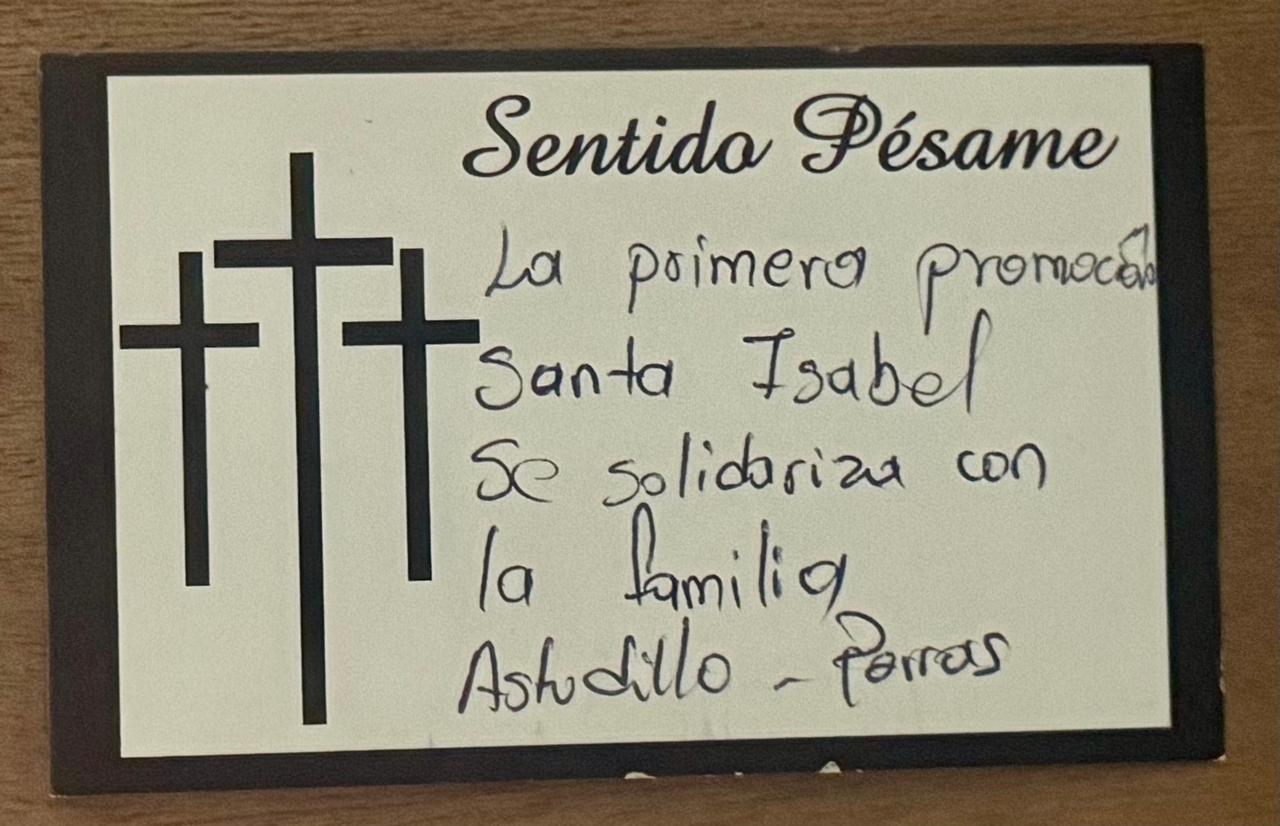 Sentido Pésame
La primera promoción
Santa Isabel
Se solidariza con
la familia
Astudillo - Porras